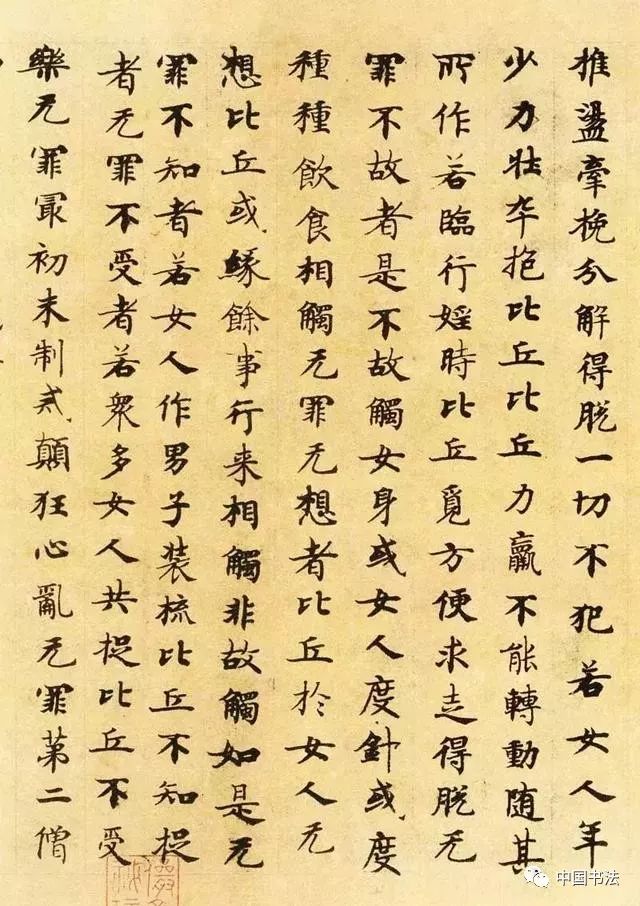 推盪牽挽分解得脱一切不犯若女人年
少力壮卒抱比丘比丘力羸不能轉動随其
所作若臨行婬時比丘覓方便求走得脱无
罪不故者是不故觸女身或女人度針或度
種種飲食相觸无罪无想者比丘於女人无
想比丘或緣餘事行来相觸非故觸如是无
罪不知者若女人作男子装梳比丘不知捉
者无罪不受者若衆多女人共捉比丘不受
樂无罪冣初未制戒顛狂心亂无罪第二僧
中国书法